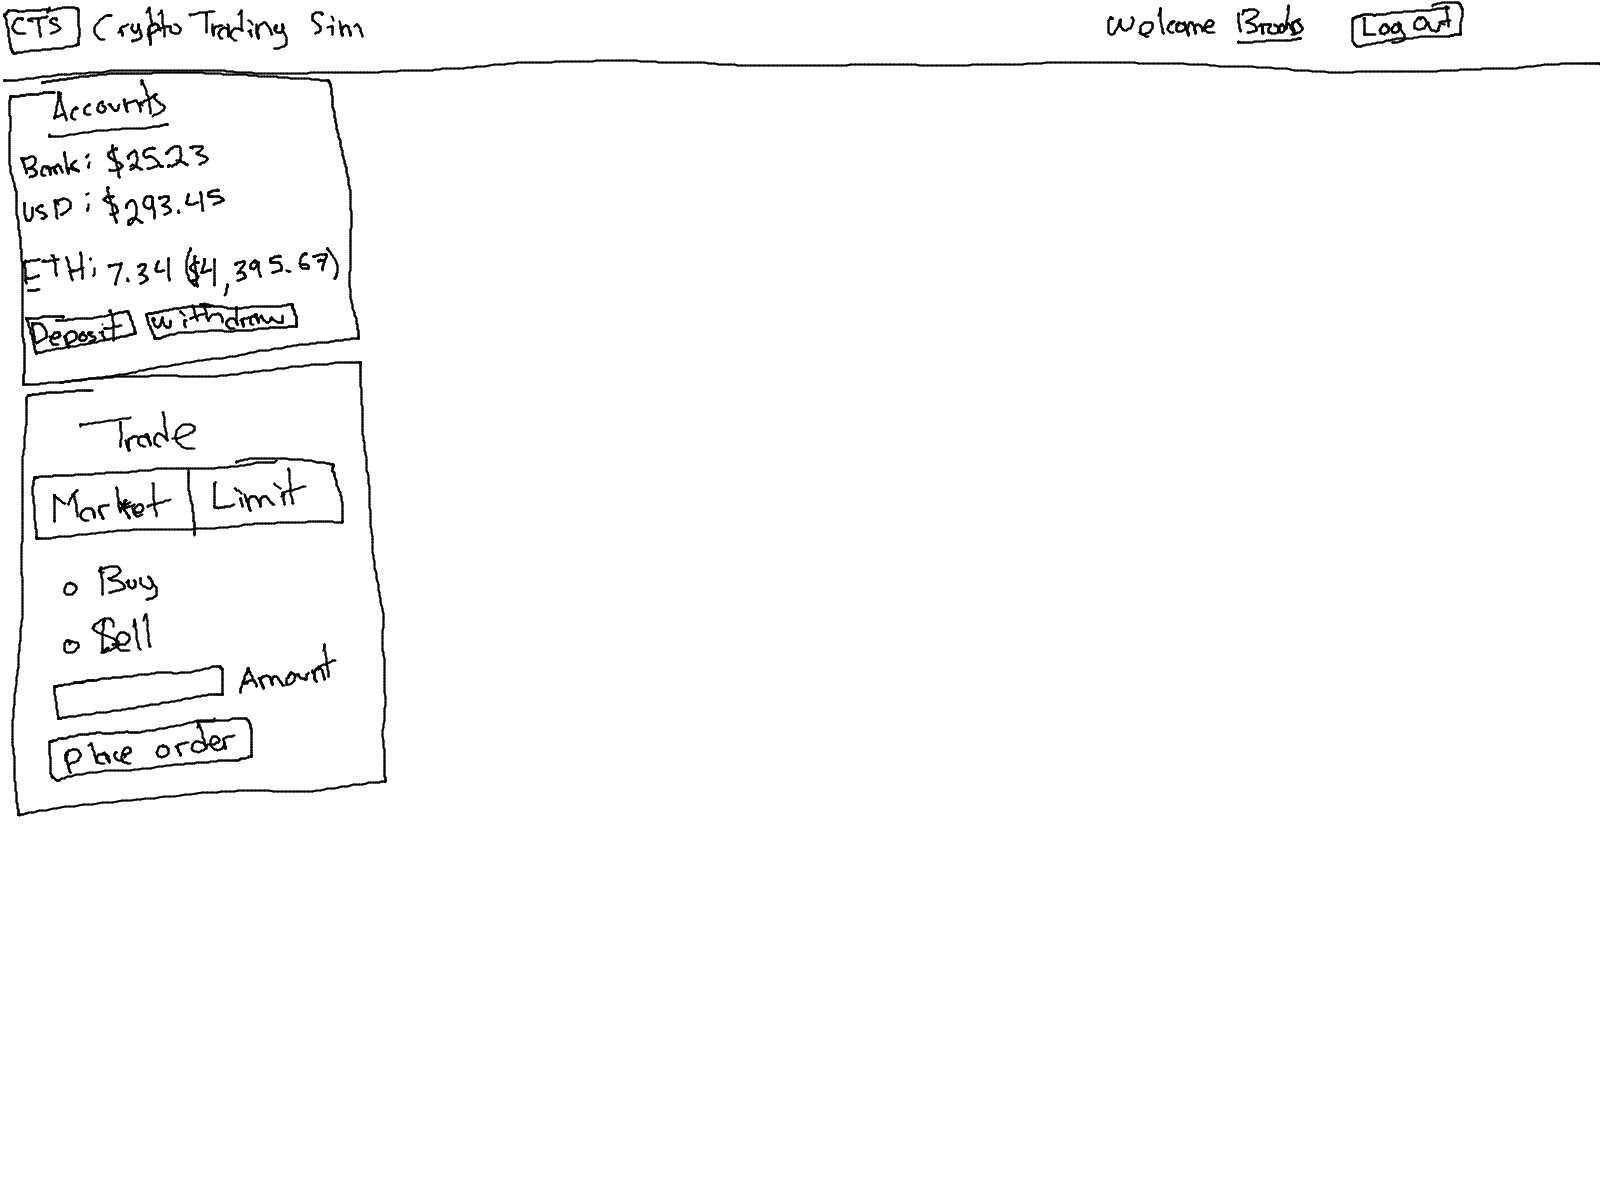 CTS Crypto Trading Sim Welcome Brooks Log Out
Accounts
Bank: $25.23
USD: $293.45
ETH: 7.34 ($4,395.67)
Deposit Withdraw
Trade
Market Limit
Buy
Sell
Amount
Place order